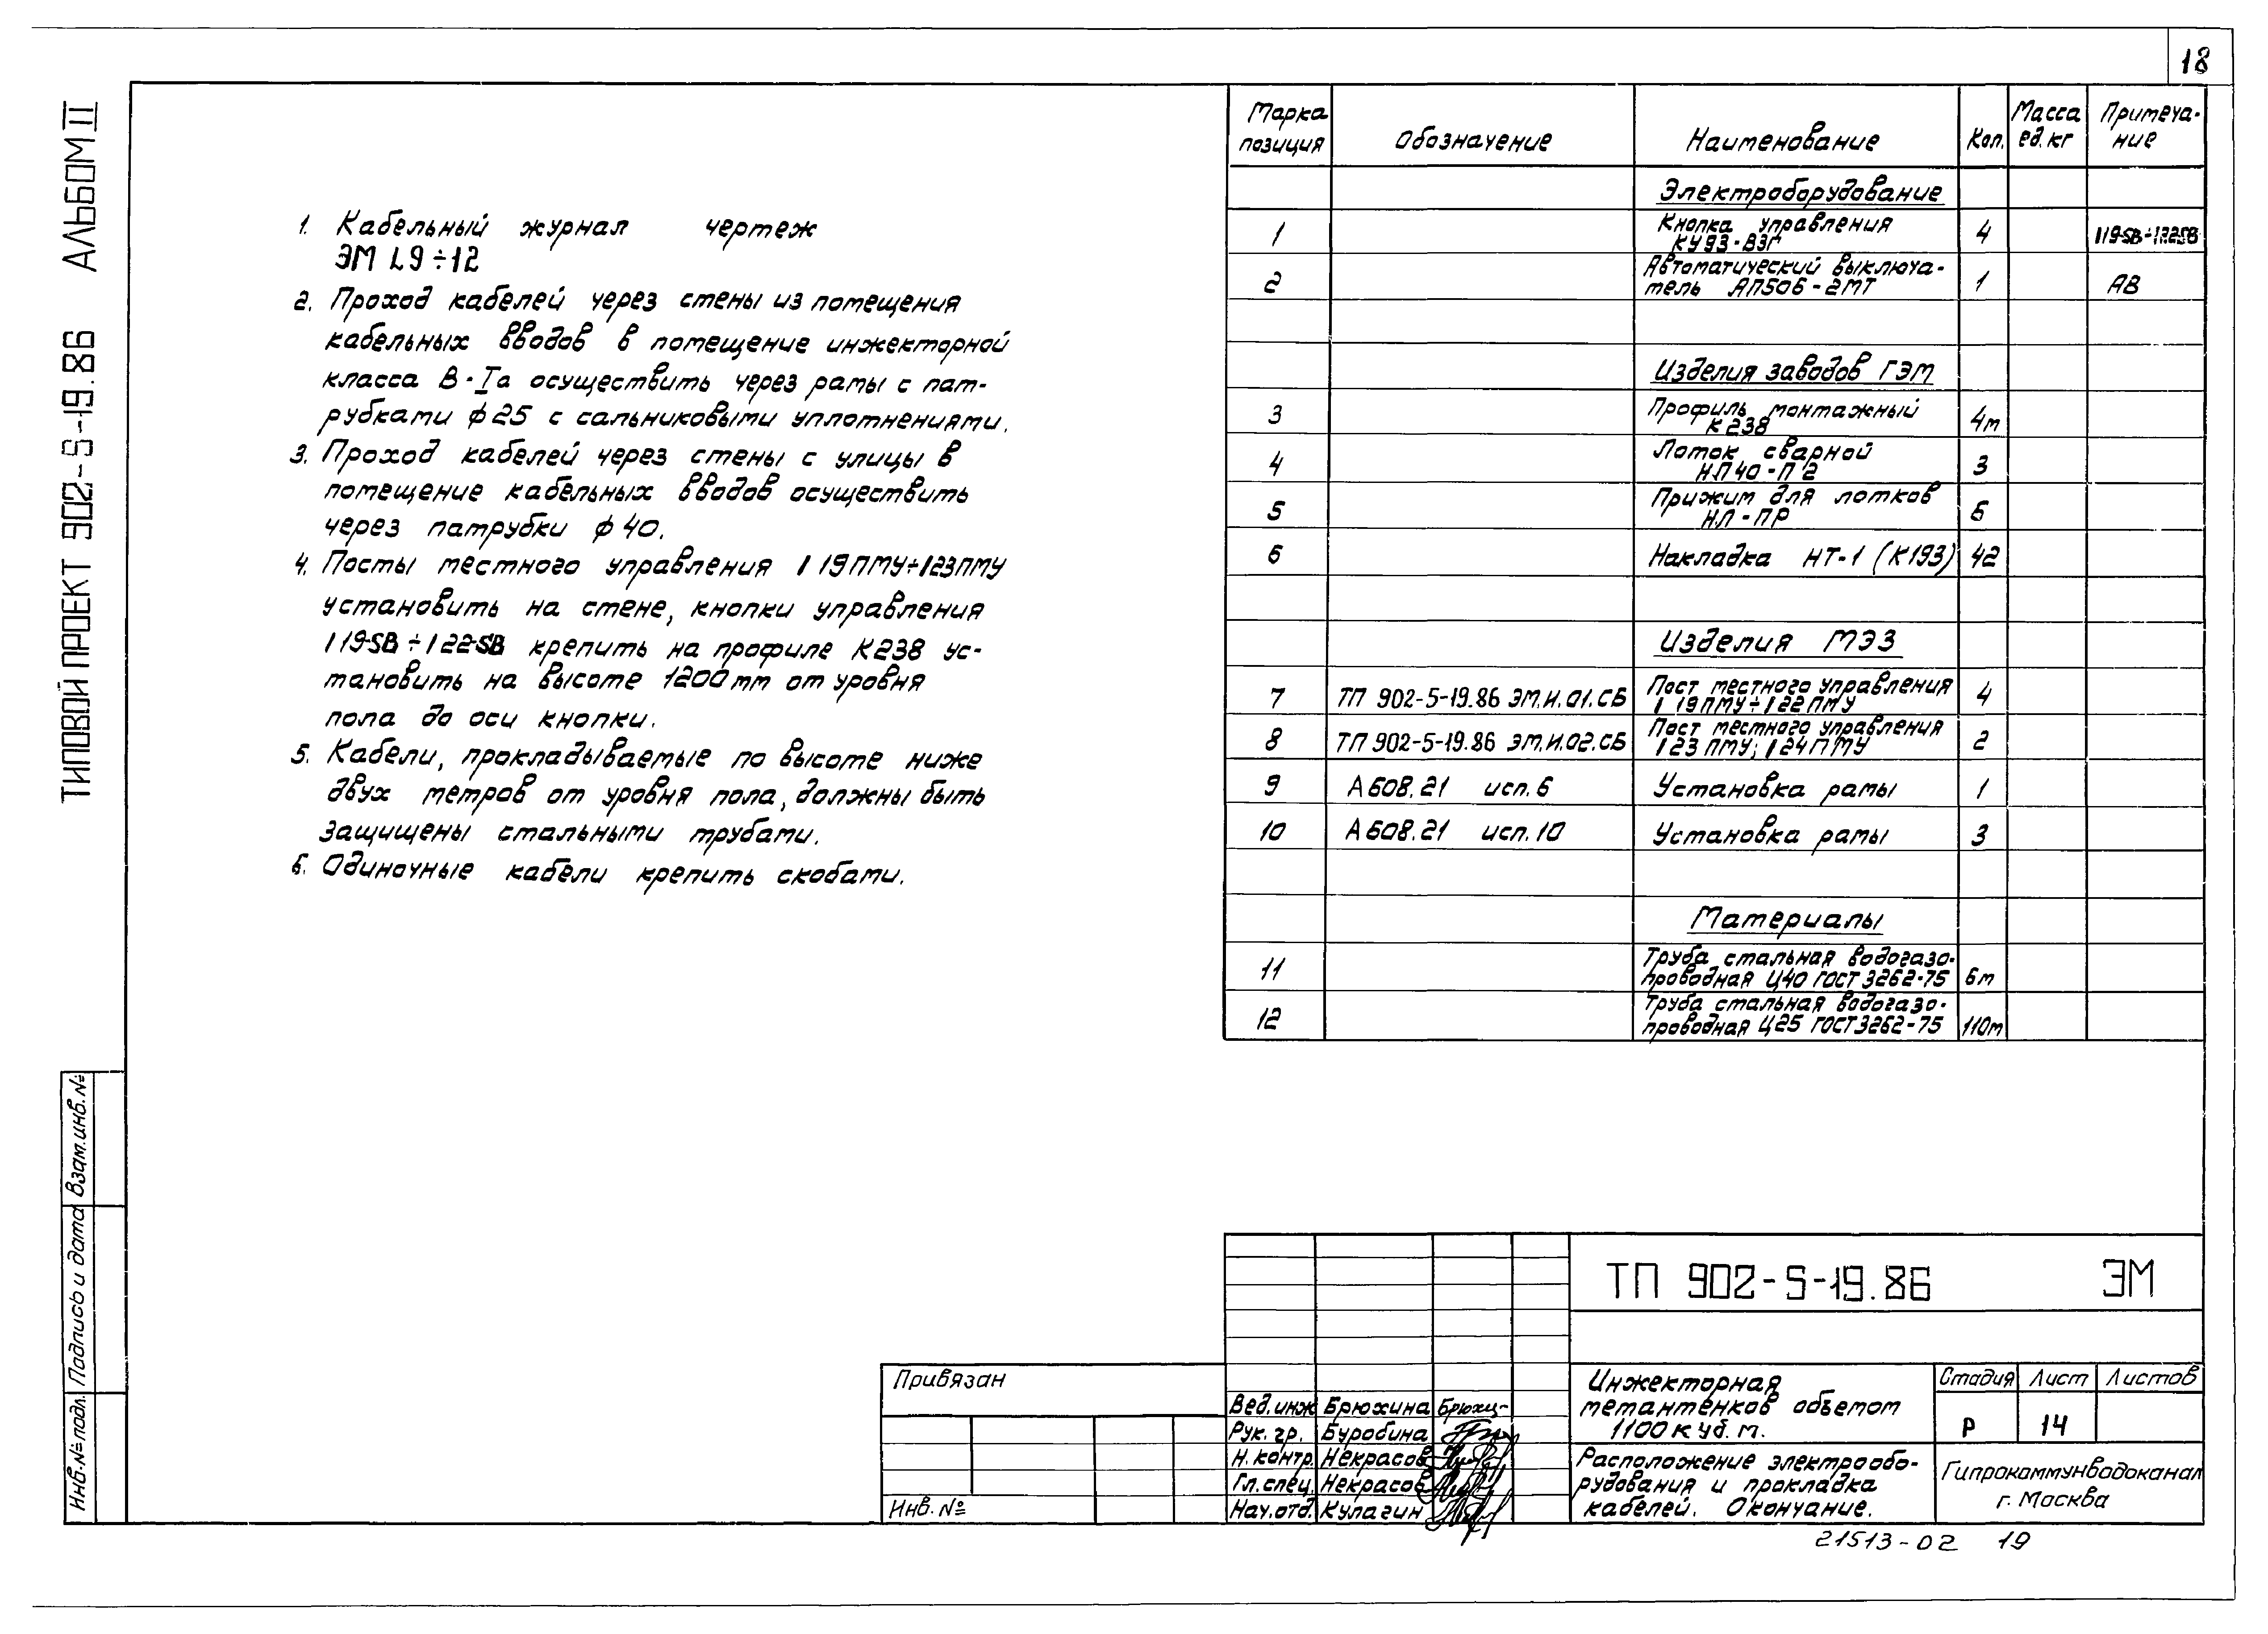 18
ТИПОВОЙ ПРОЕКТ 902-5-19.86 АЛЬБОМ II
1. Кабельный журнал чертеж
ЭМ 1.9÷12
2. Проход кабелей через стены из помещения
кабельных вводов в помещение инжекторной
класса В-Iа осуществить через рамы с пат-
рубками ф25 с сальниковыми уплотнениями.
3. Проход кабелей через стены с улицы в
помещение кабельных вводов осуществить
через патрубки ф40.
4. Посты местного управления 119ПМУ÷123ПМУ
установить на стене, кнопки управления
119-SB÷122-SB крепить на профиле К238 ус-
тановить на высоте 1200мм от уровня
пола до оси кнопки.
5. Кабели, прокладываемые по высоте ниже
двух метров от уровня пола, должны быть
защищены стальными трубами.
6. Одиночные кабели крепить скобами.
Марка позиция Обозначение Наименование Кол. Масса ед.кг Примеча-ние
Электрооборудование
1 Кнопка управления КУ93-ВЗГ 4 119-SB÷122SB
2 Автоматический выключа-тель АП50Б-2МТ 1 АВ
Изделия заводов ГЭМ
3 Профиль монтажный К238 4м
4 Лоток сварной НЛ40-П2 3
5 Прижим для лотков НЛ-ПР 6
6 Накладка НТ-1 (К193) 42
Изделия МЭЗ
7 ТП 902-5-19.86 ЭМ.И.01.СБ Пост местного управления 119ПМУ÷122ПМУ 4
8 ТП 902-5-19.86 ЭМ.И.02.СБ Пост местного управления 123ПМУ; 124ПМУ 2
9 А608.21 исп.6 Установка рамы 1
10 А608.21 исп.10 Установка рамы 3
Материалы
11 Труба стальная водогазо-проводная Ц40 ГОСТ 3262-75 6м
12 Труба стальная водогазо-проводная Ц25 ГОСТ 3262-75 110м
Взам.инв.№
Подпись и дата
Инв.№ подл.
Привязан
Инв. №
Вед.инж Брюхина Брюхи-
Рук. гр. Буробина
Н.контр. Некрасов
Гл.спец. Некрасов
Нач.отд. Кулагин
ТП 902-5-19.86 ЭМ
Инжекторная
метантенков объемом
1100 куб. м.
Стадия Лист Листов
Р 14
Расположение электрообо-
рудования и прокладка
кабелей. Окончание.
Гипрокоммунводоканал
г. Москва
21513-02 19